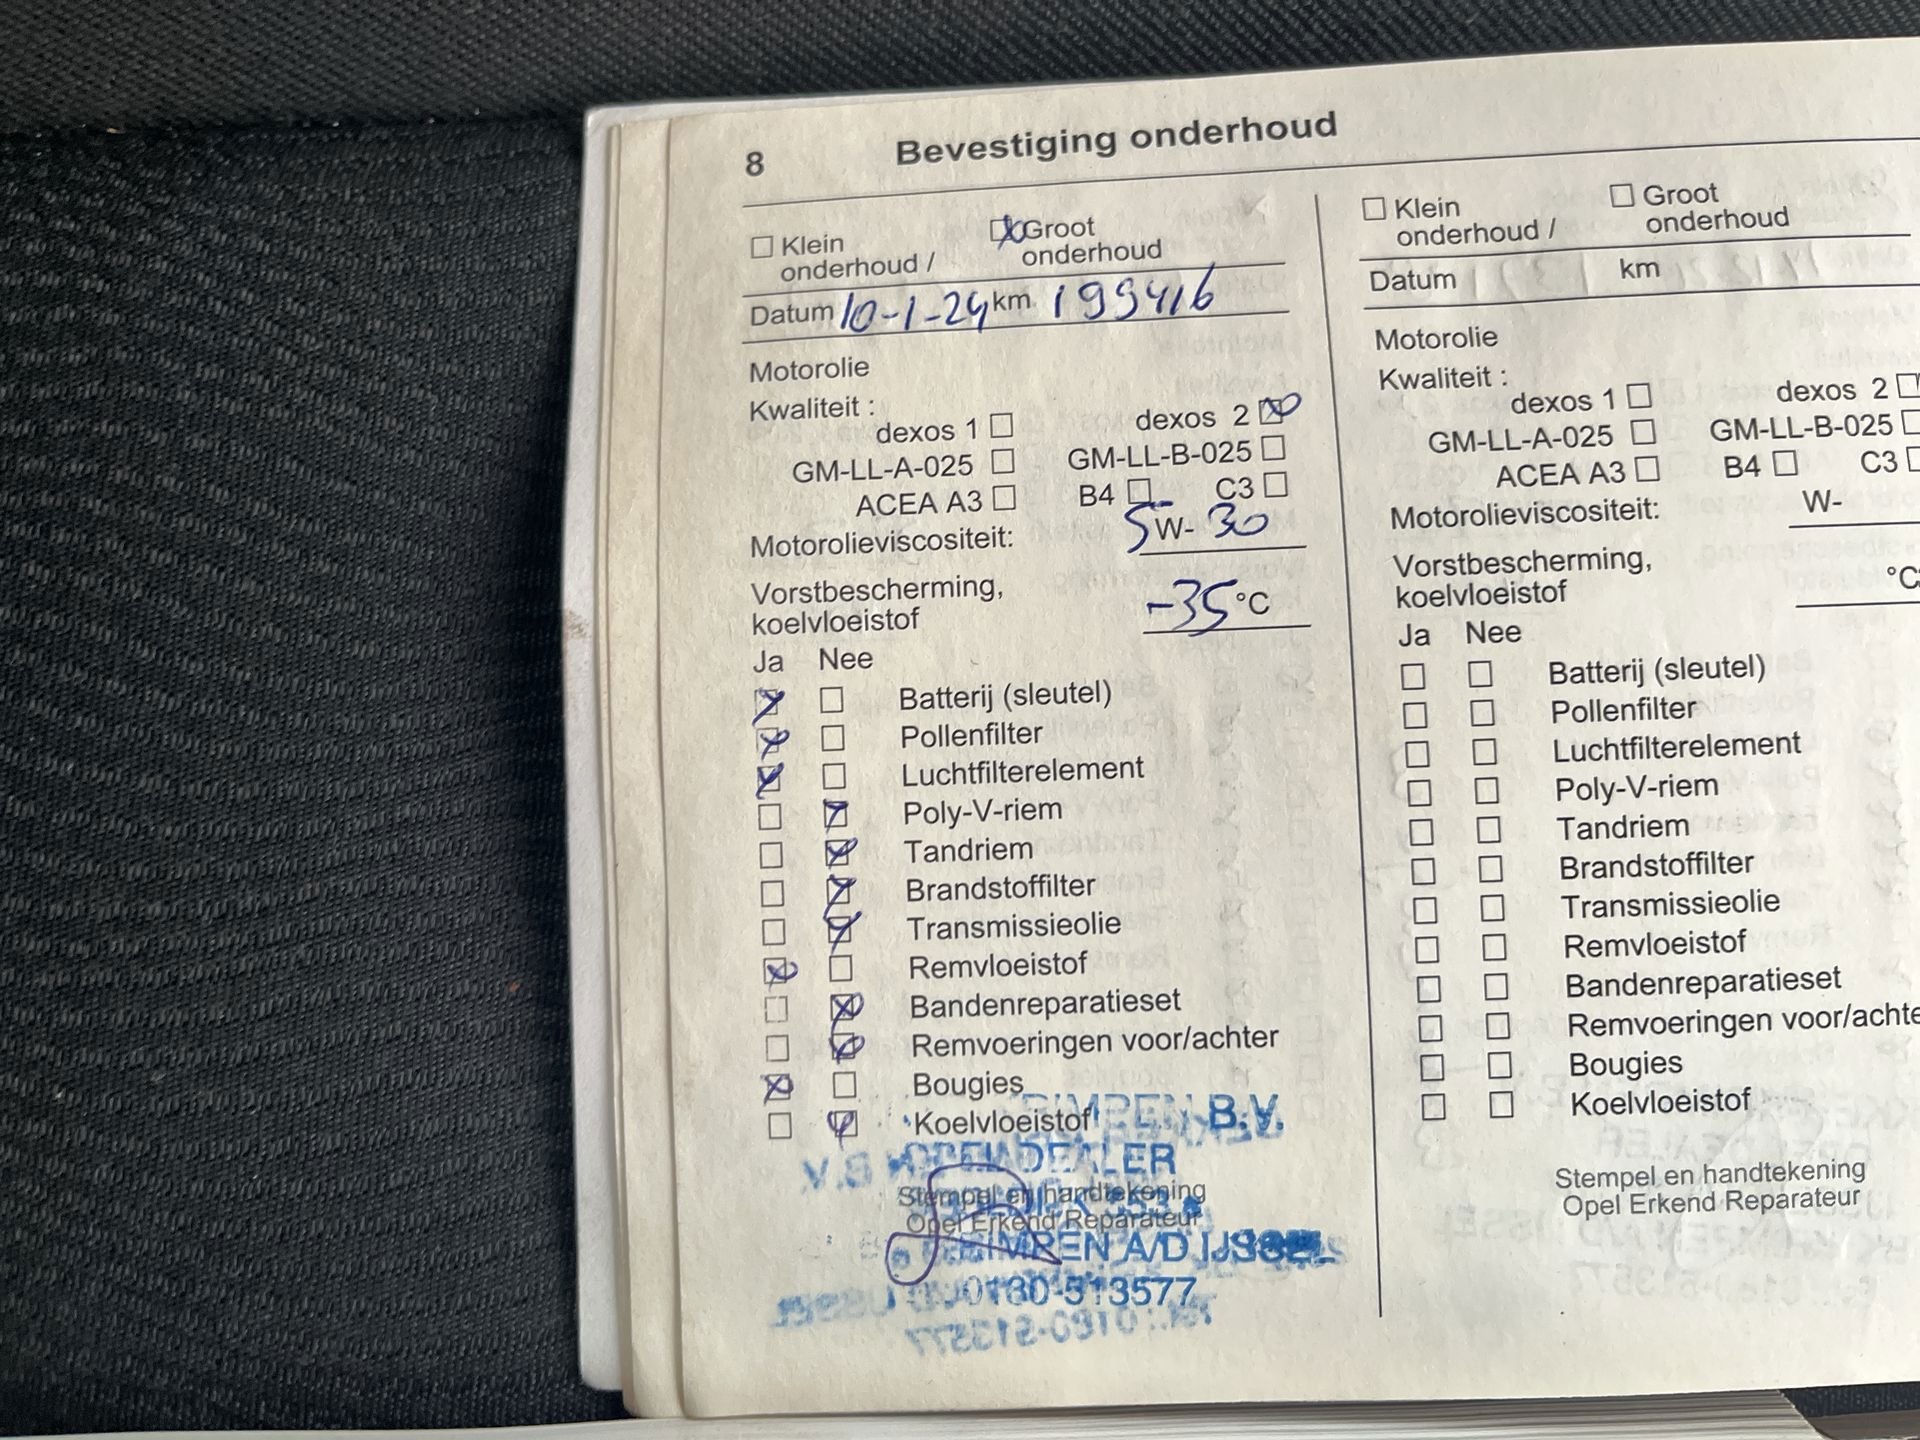 8 Bevestiging onderhoud
Klein Groot
onderhoud / onderhoud
Datum 10-1-24 km 199416
Motorolie
Kwaliteit :
dexos 1 dexos 2
GM-LL-A-025 GM-LL-B-025
ACEA A3 B4 C3
Motorolieviscositeit: 5 W- 30
Vorstbescherming,
koelvloeistof -35 °C
Ja Nee
Batterij (sleutel)
Pollenfilter
Luchtfilterelement
Poly-V-riem
Tandriem
Brandstoffilter
Transmissieolie
Remvloeistof
Bandenreparatieset
Remvoeringen voor/achter
Bougies
Koelvloeistof
B.V.
DEALER
Stempel en handtekening
Opel Erkend Reparateur
A/D IJSSEL
0180-513577
Klein Groot
onderhoud / onderhoud
Datum km
Motorolie
Kwaliteit :
dexos 1 dexos 2
GM-LL-A-025 GM-LL-B-025
ACEA A3 B4 C3
Motorolieviscositeit: W-
Vorstbescherming,
koelvloeistof °C
Ja Nee
Batterij (sleutel)
Pollenfilter
Luchtfilterelement
Poly-V-riem
Tandriem
Brandstoffilter
Transmissieolie
Remvloeistof
Bandenreparatieset
Remvoeringen voor/achte
Bougies
Koelvloeistof
Stempel en handtekening
Opel Erkend Reparateur